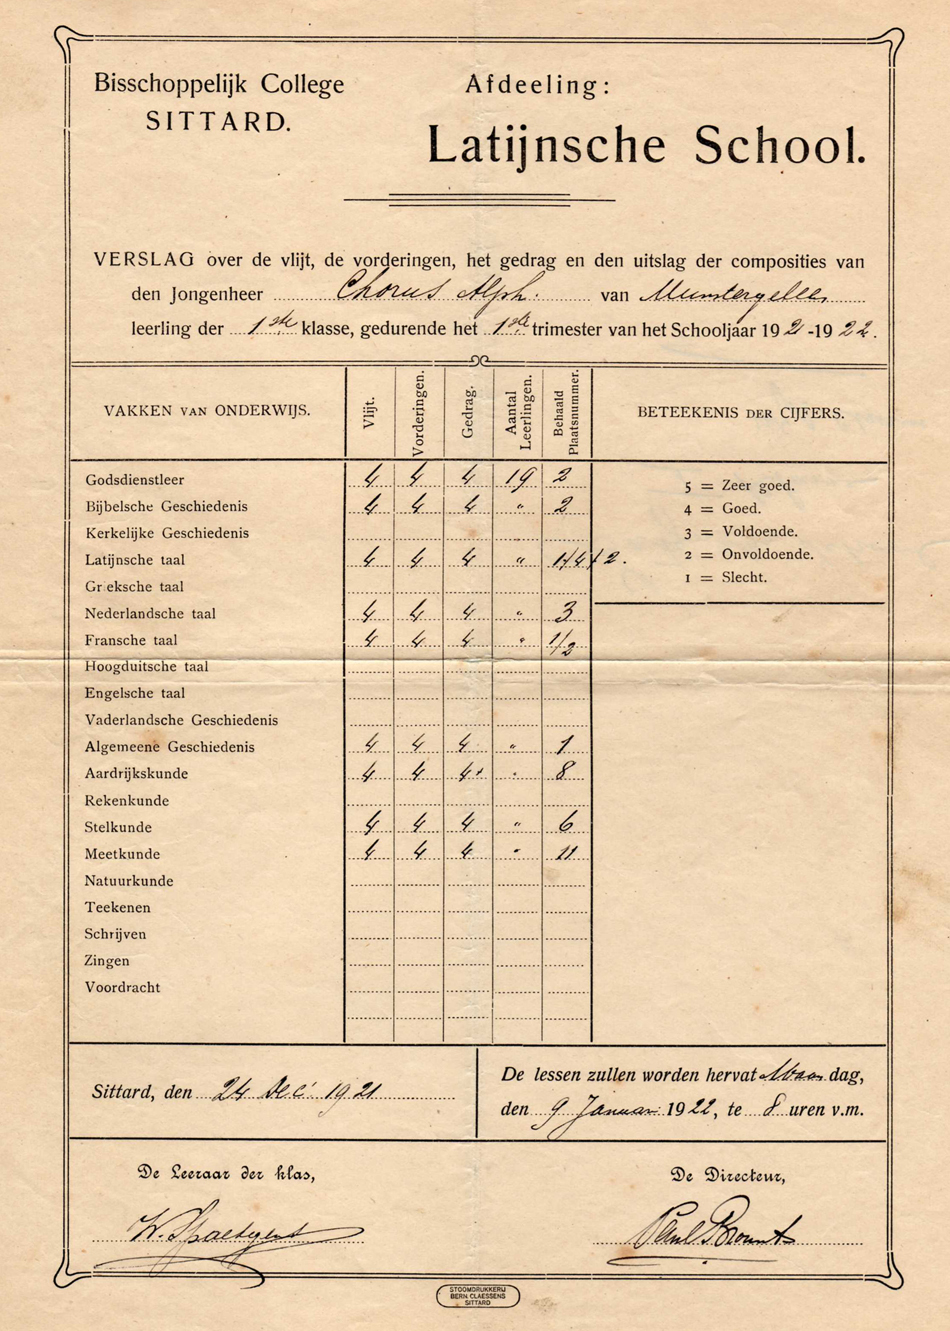 Bisschoppelijk College
SITTARD.
Afdeeling:
Latijnsche School.
VERSLAG over de vlijt, de vorderingen, het gedrag en den uitslag der composities van
den Jongenheer Chorus Alph. van Munstergeleen
leerling der 1ste klasse, gedurende het 1ste trimester van het Schooljaar 192-1922.
VAKKEN VAN ONDERWIJS. Vlijt. Vorderingen. Gedrag. Aantal Leerlingen. Behaald Plaatsnummer. BETEEKENIS DER CIJFERS.
Godsdienstleer 4 4 4 19 2
Bijbelsche Geschiedenis 4 4 4 " 2
Kerkelijke Geschiedenis
Latijnsche taal 4 4 4 " 1+4+2.
Gr eksche taal
Nederlandsche taal 4 4 4 " 3
Fransche taal 4 4 4 " 1/2
Hoogduitsche taal
Engelsche taal
Vaderlandsche Geschiedenis
Algemeene Geschiedenis 4 4 4 " 1
Aardrijkskunde 4 4 4 " 8
Rekenkunde
Stelkunde 4 4 4 " 6
Meetkunde 4 4 4 " 11
Natuurkunde
Teekenen
Schrijven
Zingen
Voordracht
5 = Zeer goed.
4 = Goed.
3 = Voldoende.
2 = Onvoldoende.
1 = Slecht.
Sittard, den 24 Dec. 1921
De lessen zullen worden hervat Maandag,
den 9 Januari 1922, te 8 uren v.m.
De Leeraar der klas,
De Directeur,
STOOMDRUKKERIJ
BERN. CLAESSENS
SITTARD